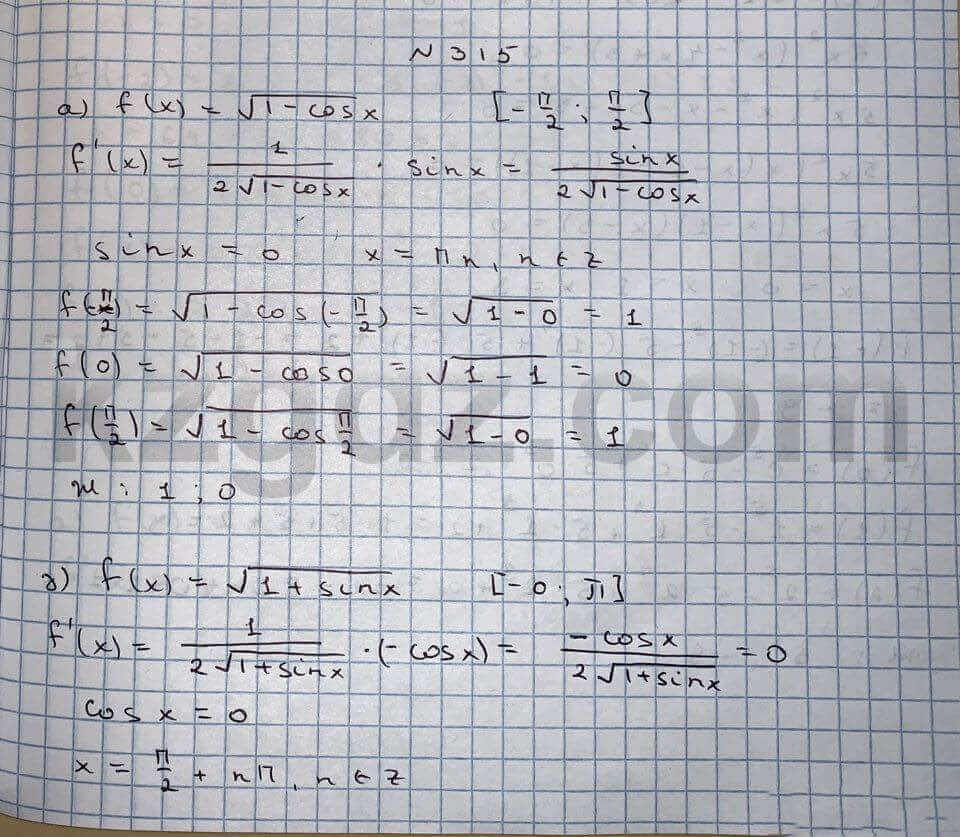 N 315
а) f(x) = √(1 - cosx) [-π/2 ; π/2]
f'(x) = 1/(2√(1-cosx)) · sinx = sinx/(2√(1-cosx))
sinx = 0 x = πn, n ∈ z
f(-π/2) = √(1 - cos(-π/2)) = √(1-0) = 1
f(0) = √(1 - cos0) = √(1-1) = 0
f(π/2) = √(1 - cos π/2) = √(1-0) = 1
kzgdz.com
: 1 ; 0
f(x) = √(1 + sinx) [-0 ; π]
f'(x) = 1/(2√(1+sinx)) · (-cosx) = -cosx/(2√(1+sinx)) = 0
cos x = 0
x = π/2 + nπ, n ∈ z